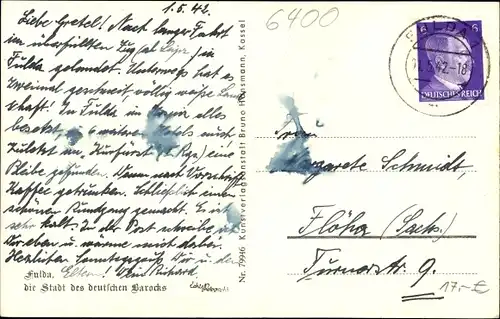 1.5.42.
Liebe Gretel! Nach langer Fahrt
im überfüllten Zug, bei
Fulda gelandet. Unterwegs hat es
zweimal geschneit, völlig weiße Land
schaft! In Fulda alles
besetzt, 6 weitere Hotels
zuletzt im Kurfürst eine
Bleibe gefunden. Dann nach Vorschrift
Kaffee getrunken. Schließlich einen
schönen Rundgang gemacht. Es ist
sehr kalt. In der Post schreibe
eben und wärme mich dabei.
Herzlichen Sonntagsgruß Dir u. den
Eltern! Dein Richard
Fulda,
die Stadt des deutschen Barocks
Nr. 79946 Kunstverlagsanstalt Bruno Hansmann, Kassel
6400
FULDA
1.5.42.-18
6 6
DEUTSCHES REICH
Margarete Schmidt,
Flöha (Sachs.)
Turnerstr. 9.
17.-€